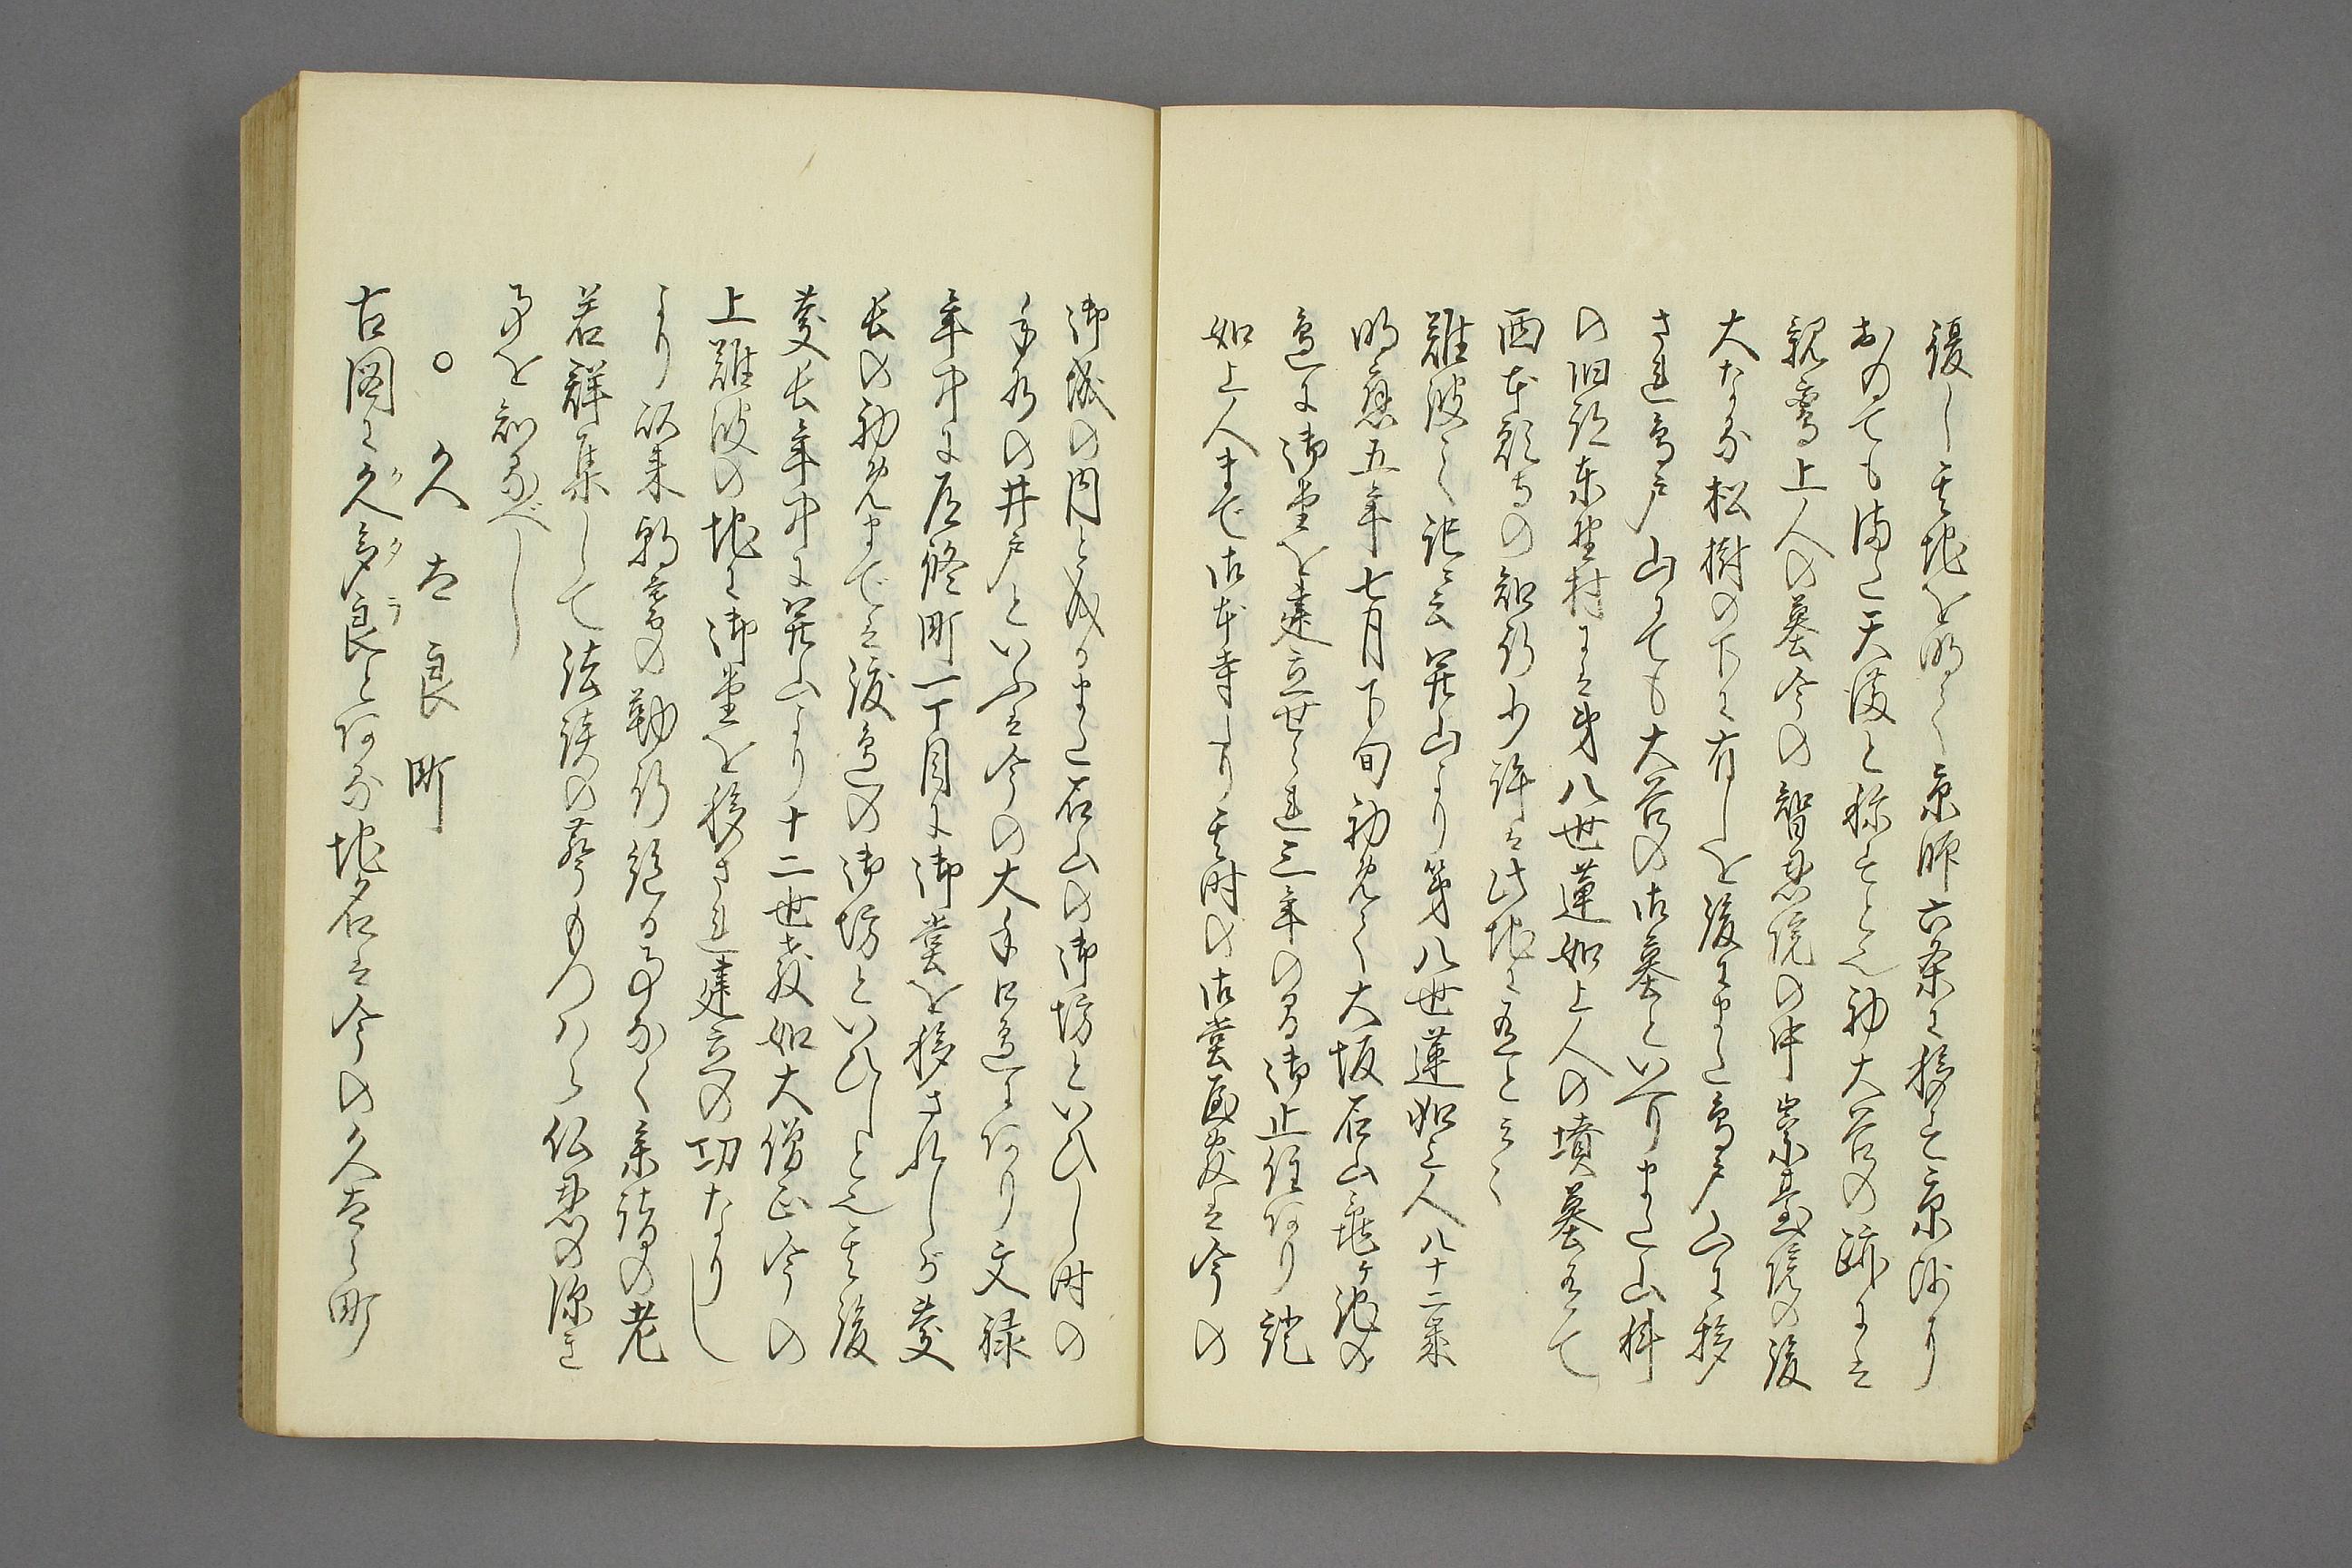 復し其地を明て京師六条に移す京沙り
おゐても海に天満と称すとそ初大谷の跡には
親鸞上人の墓今の智恵院の中崇臺院の後
大なる松樹の下に有しを後にまた鳥戸山に移
され鳥戸山にても大谷の御墓といへりまた山科
の旧跡東野村には第八世蓮如上人の墳墓有て
西本願寺の知行少許は此地に有とそ
難波之記ニ云茲山より第八世蓮如上人八十二策
明應五年七月下旬初免て大坂石山亀ヶ池の
邉に御堂を建立せられ三年の間御止住ありり證
如上人まで御本寺より其時の御堂屋敷は今の
御城の内と成るまた石山の御坊といひし時の
手水の井戸といふは今の大手口邉にありり文禄
年中に居館町一丁目に御堂を移されしが慶
長の初免まては渡邉の御坊といひしとそ其後
慶長年中に茲山より十二世教如大僧正今の
上難波の地に御堂を移され建立の功なりし
より以来朝暮の勤行絶る事なく参詣の老
若群集して法談の莚もつハら仏恩の深き
事を知るべし
○久太良町
古図に久多良とある地名は今の久太良町
クタラ